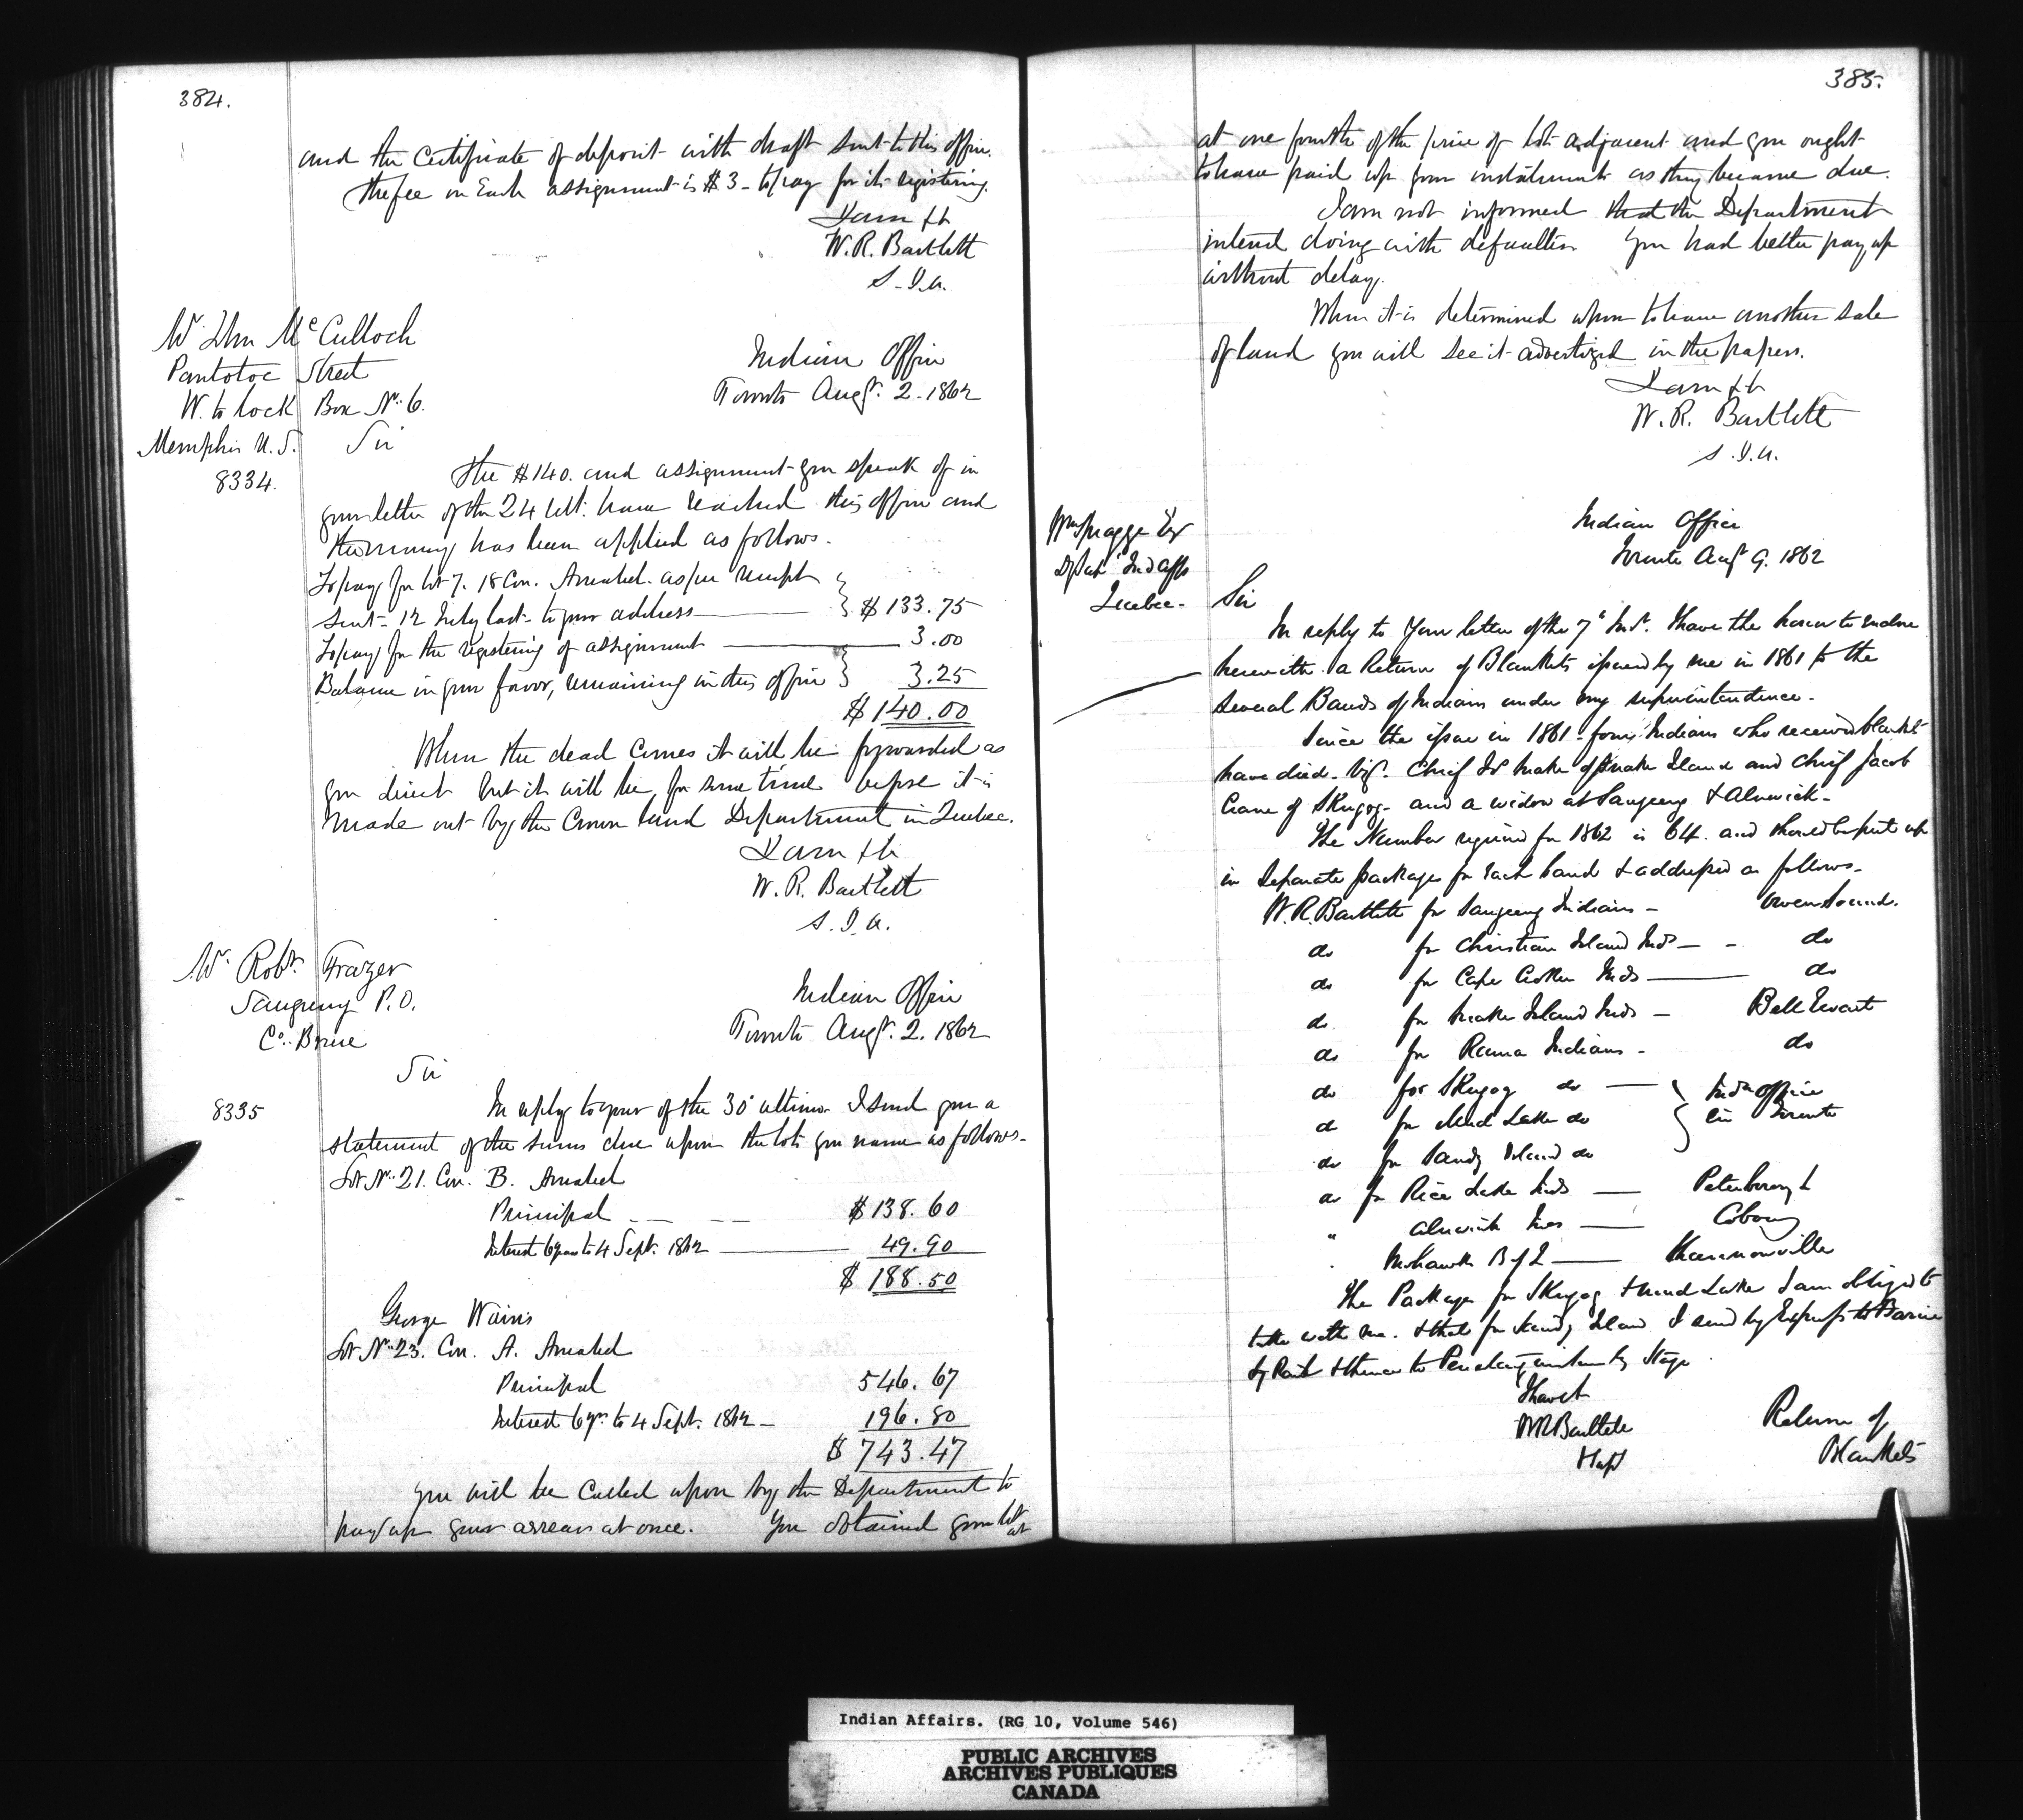 384.
and the Certificate of deposit with draft sent to this office.
The fee on Each assignment is $3 - to pay for its registering.
I am &c
W. R. Bartlett
S. I. A.
Mr. McCulloch
Pontotoc Street
Box No. 6.
Memphis U. S.
8334.
Indian Office
Toronto Augt. 2. 1862
Sir
The $140. and assignment you speak of in
your letter of the 24 Ult. have reached this office and
the money has been applied as follows.
To pay for lot 7. 18 Con. Amabel. as per receipt
sent 12 July last to your address $133.75
To pay for the registering of assignment 3.00
Balance in your favor, remaining in this office 3.25
$140.00
When the deed comes it will be forwarded as
you direct but it will be for some time before it is
made out by the Crown Land Department in Quebec.
I am &c
W. R. Bartlett
S. I. A.
Mr. Robt. Frazer
Saugeeng P. O.
Co. Bruce
Indian Office
Toronto Augt. 2. 1862
Sir
8335
In reply to your of the 30 ultimo I send you a
statement of the sums due upon the lots you name as follows.
Lot No. 21. Con. B. Amabel
Principal $138.60
Interest 6 years to 4 Sept. 1862 49.90
$188.50
George
Lot No. 23. Con. A. Amabel
Principal 546.67
Interest 6 yrs. to 4 Sept. 1862 196.80
$743.47
You will be Called upon by the Department to
pay up your arrears at once. You obtained your lot
at
385.
at one fourth of the price of lots adjacent and you ought
to have paid up your instalments as they became due.
I am not informed the Department
intend doing with defaulters You had better pay up
without delay.
When it is determined upon to have another sale
of land you will see it advertized in the papers.
I am &c
W. R. Bartlett
S. I. A.
Wm Spragge Esq
Depart Ind Affs
Quebec.
Indian Office
Toronto Augt 9. 1862
Sir
In reply to Your letter of the 7th Inst. I have the honor to enclose
herewith a Return of Blankets issued by me in 1861 to the
several Bands of Indians under my superintendence.
Since the issue in 1861 four Indians who received blankets
have died. Viz. Chief Snake of Snake Island and Chief Jacob
Crane of Skugog. and a widow at Saugeeng & Alnwick.
The Number required for 1862 is 64. and should be put up
in Separate packages for each band & addressed as follows.
W. R. Bartlett for Saugeeng Indians - Owen Sound.
do for Christian Island Inds - - do
do for Cape Croker Inds do
do. for Snake Island Inds - Bell Ewart
do for Rama Indians - do
do for Skugog do Indn Office
do for Mud Lake do in Toronto
do for Sandy Island do
do for Rice Lake Inds Peterborough
" Alnwick Inds Cobourg
. Mohawks B of Q Shannonville
The Packages for Skugog & Mud Lake I am obliged to
take with me. & that for Sandy Island I send by Express to Barrie
by Rail & thence to Penetanguishene by Stage.
I have &c
WR Bartlett
Return of
Blankets
Indian Affairs. (RG 10, Volume 546)
PUBLIC ARCHIVES
ARCHIVES PUBLIQUES
CANADA